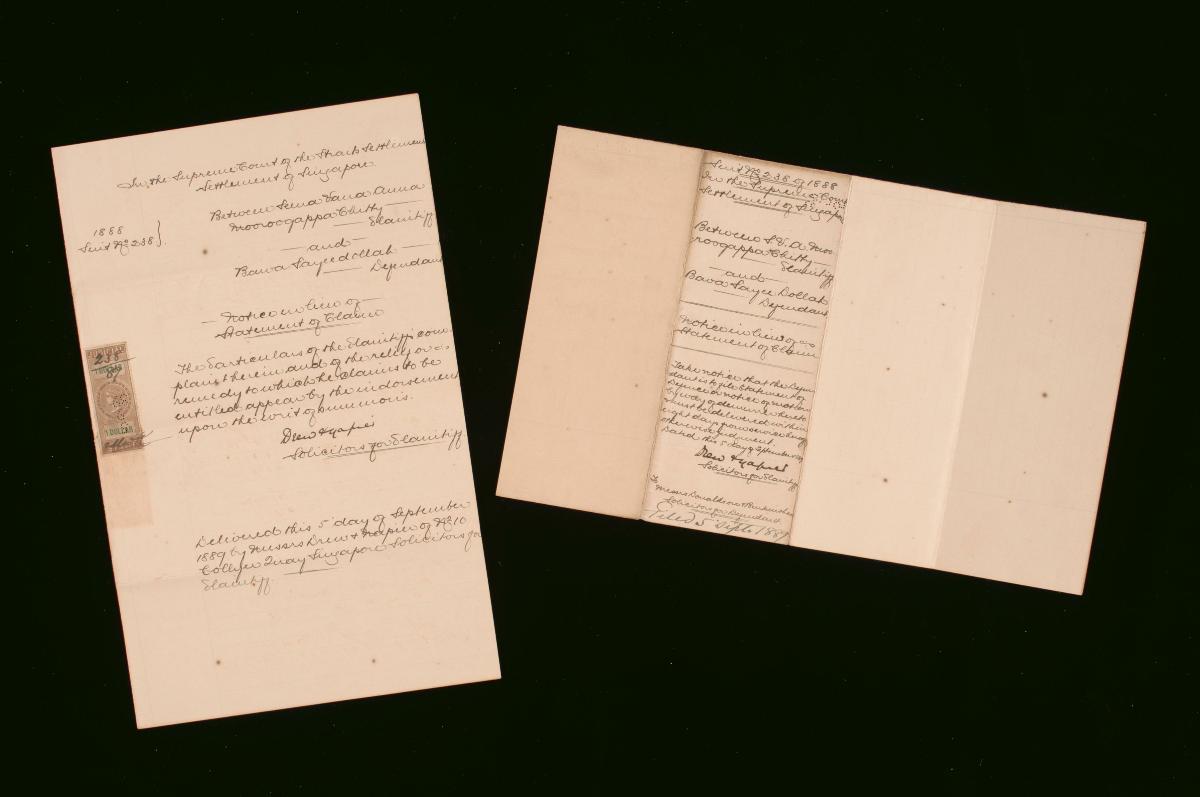 In the Supreme Court of the Straits Settlements
Settlement of Singapore
Between Sena Vana Anna
Mooroogappa Chitty
Plaintiff
1888
Suit No 238 }
and
Bawa Sayeedollah
Defendant
Notice in lieu of
Statement of Claim
The Particulars of the Plaintiff's com-
plaint herein and of the relief or
remedy to which he claims to be
entitled appear by the indorsement
upon the writ of summons.
Drew & Napier
Solicitors for Plaintiff
238
1 DOLLAR
89
1 DOLLAR
Delivered this 5 day of September
1889 by Messrs Drew & Napier of No 10
Collyer Quay Singapore Solicitors for
Plaintiff.
Suit No 238 of 1888
In the Supreme Court
Settlement of Singapore
Between S. V. A. Moo-
roogappa Chitty
Plaintiff
and
Bawa Sayee Dollah
Defendant
Notice in lieu of
Statement of Claim
Take notice that the Defen-
dant is to file Statement of
Defence or notice or motion
by way of demurrer hereto
must be delivered within
eight days from service hereof
otherwise judgment.
Dated this 5 day of September 1889
Drew & Napier
Solicitors for Plaintiff
To
Messrs Donaldson & Burkinshaw
Solicitors for Defendant
Filed 5 Sept 1889